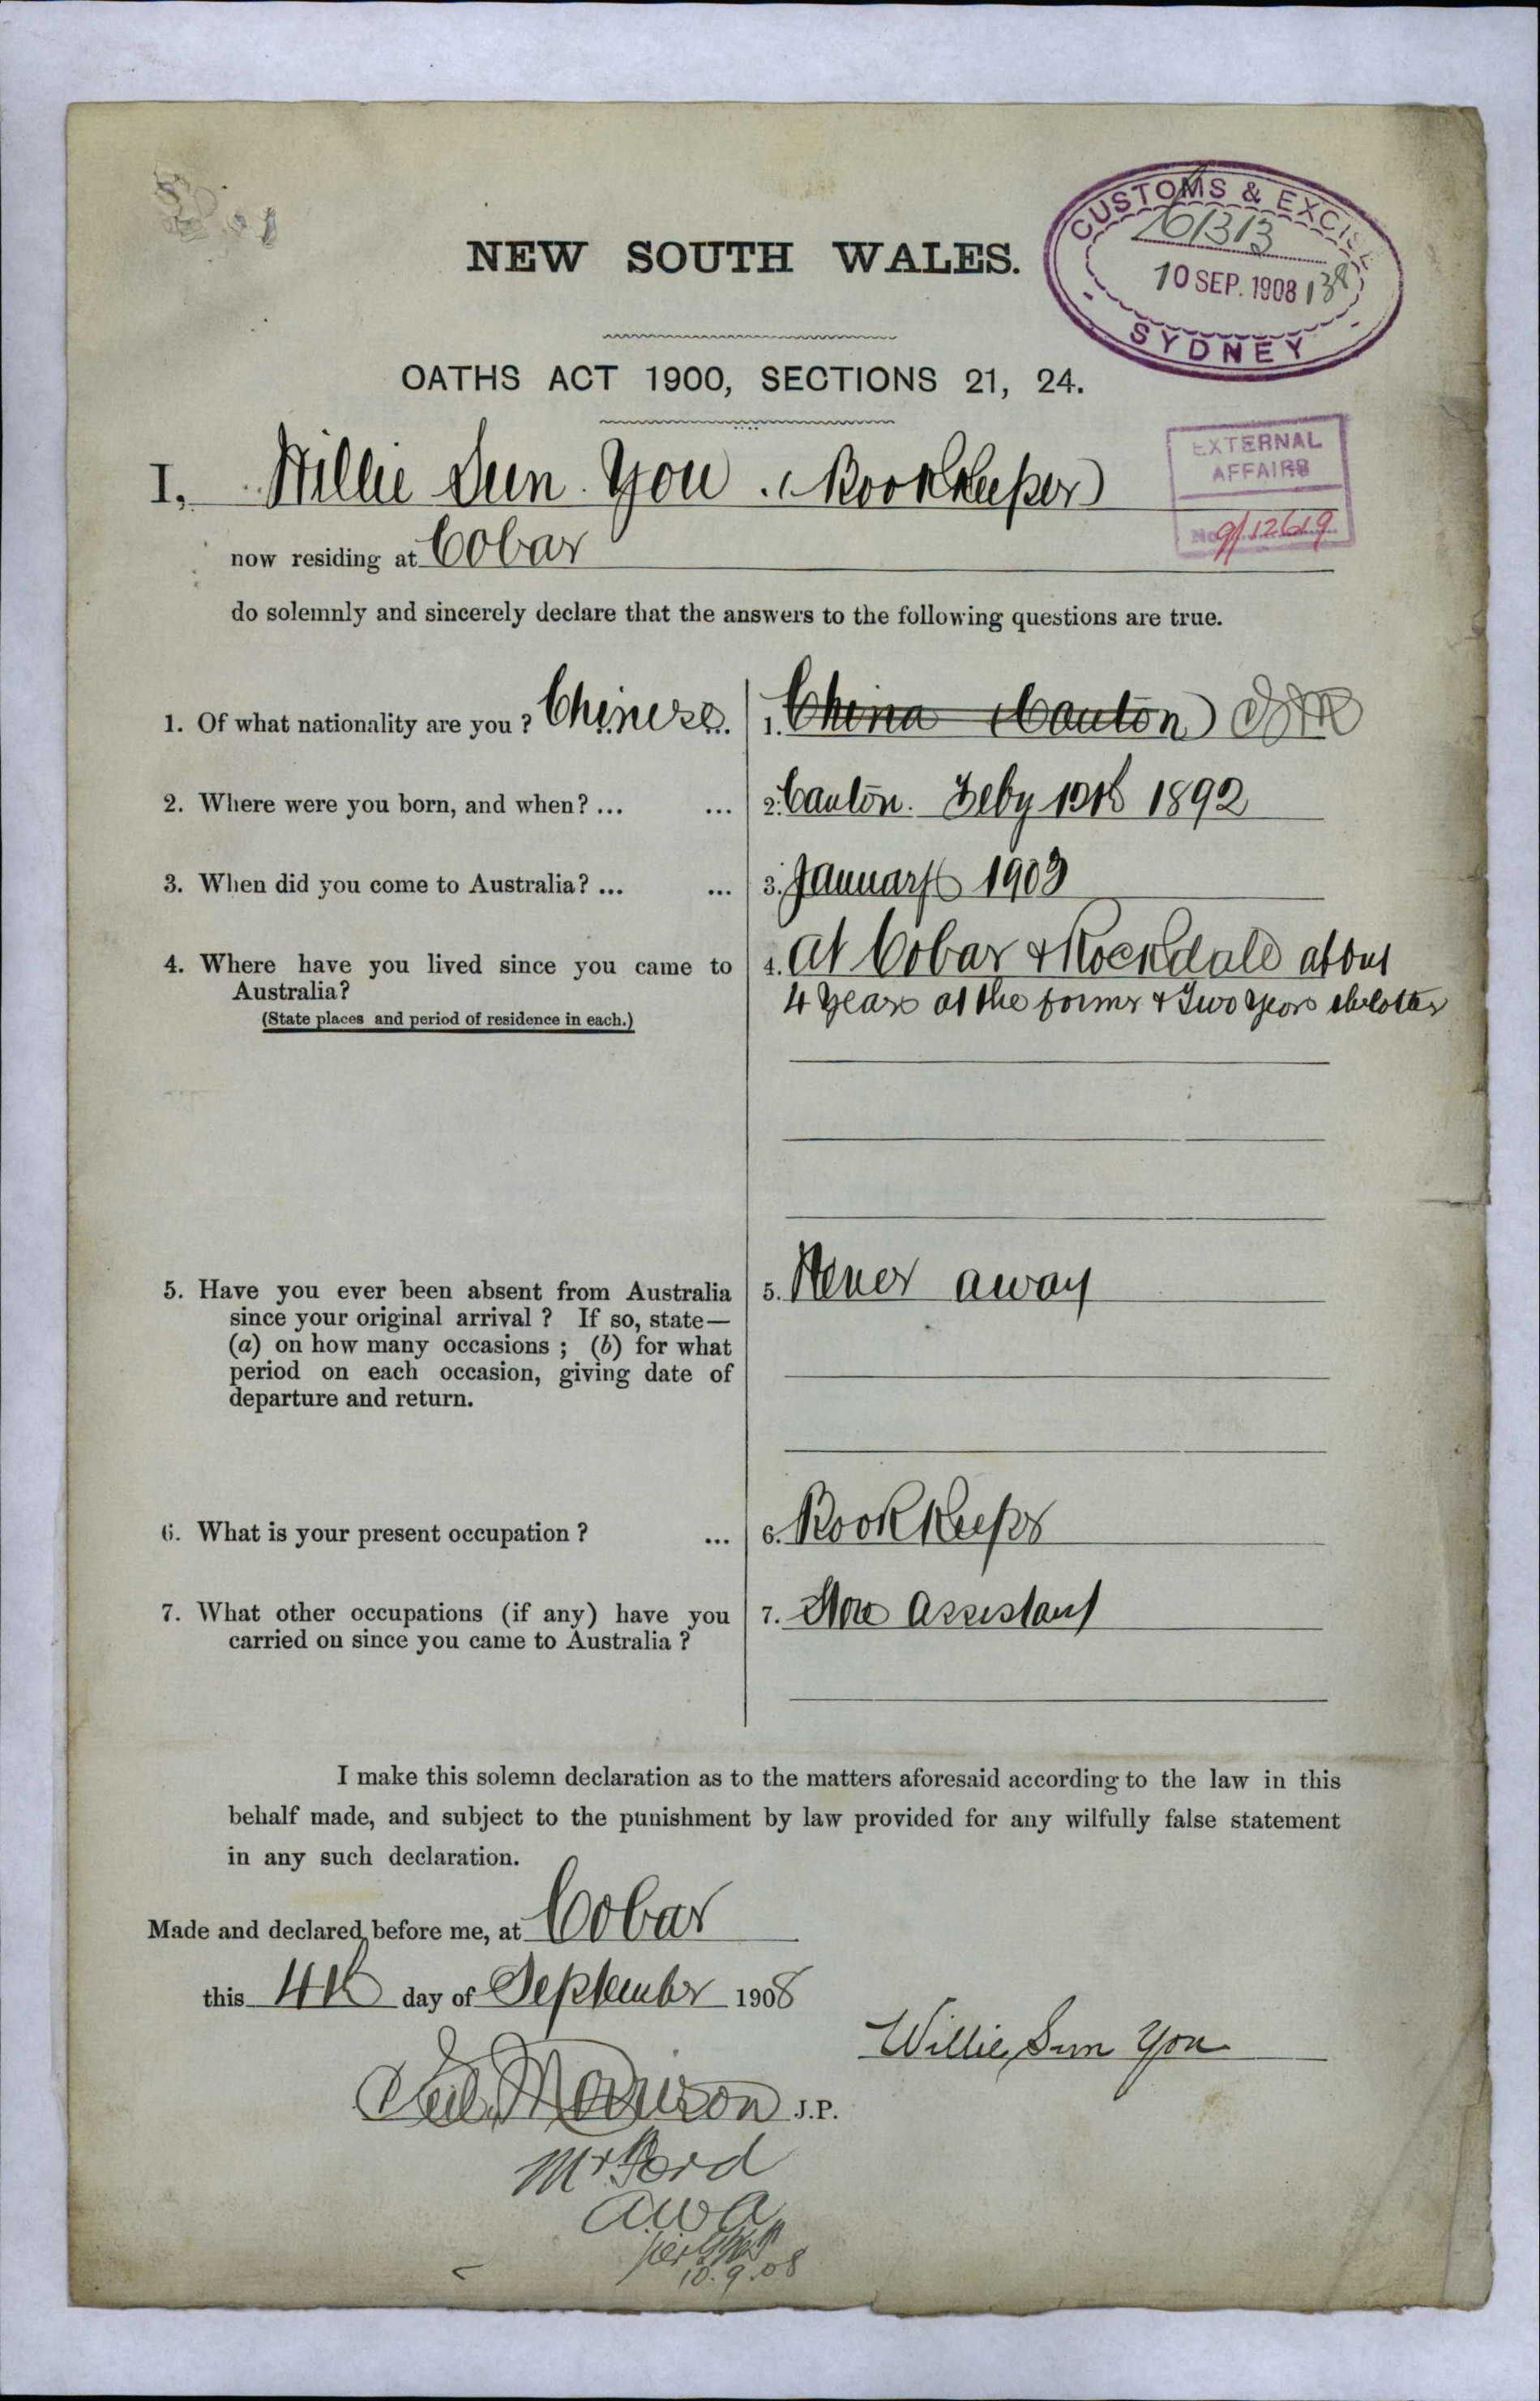 CUSTOMS & EXCISE
10 SEP. 1908 138
SYDNEY
NEW SOUTH WALES.
OATHS ACT 1900, SECTIONS 21, 24.
EXTERNAL
AFFAIRS
No 9/12619
I, Willie Sun You (Bookkeeper)
now residing at Cobar
do solemnly and sincerely declare that the answers to the following questions are true.
1. Of what nationality are you? Chinese. 1. China (Canton)
2. Where were you born, and when? ... ... 2. Canton. Feby 1892
3. When did you come to Australia? ... ... 3. January 1903
4. Where have you lived since you came to 4. At Cobar & Rockdale about
Australia? 4 years at the former & Two years the latter
(State places and period of residence in each.)
5. Have you ever been absent from Australia 5. Never away
since your original arrival? If so, state—
(a) on how many occasions; (b) for what
period on each occasion, giving date of
departure and return.
6. What is your present occupation? ... 6. Book Keeper
7. What other occupations (if any) have you 7. Store Assistant
carried on since you came to Australia?
I make this solemn declaration as to the matters aforesaid according to the law in this
behalf made, and subject to the punishment by law provided for any wilfully false statement
in any such declaration.
Made and declared before me, at Cobar
this 4th day of September 1908
Willie Sun You
Neil Morrison J.P.
Mr Ford
10.9.08